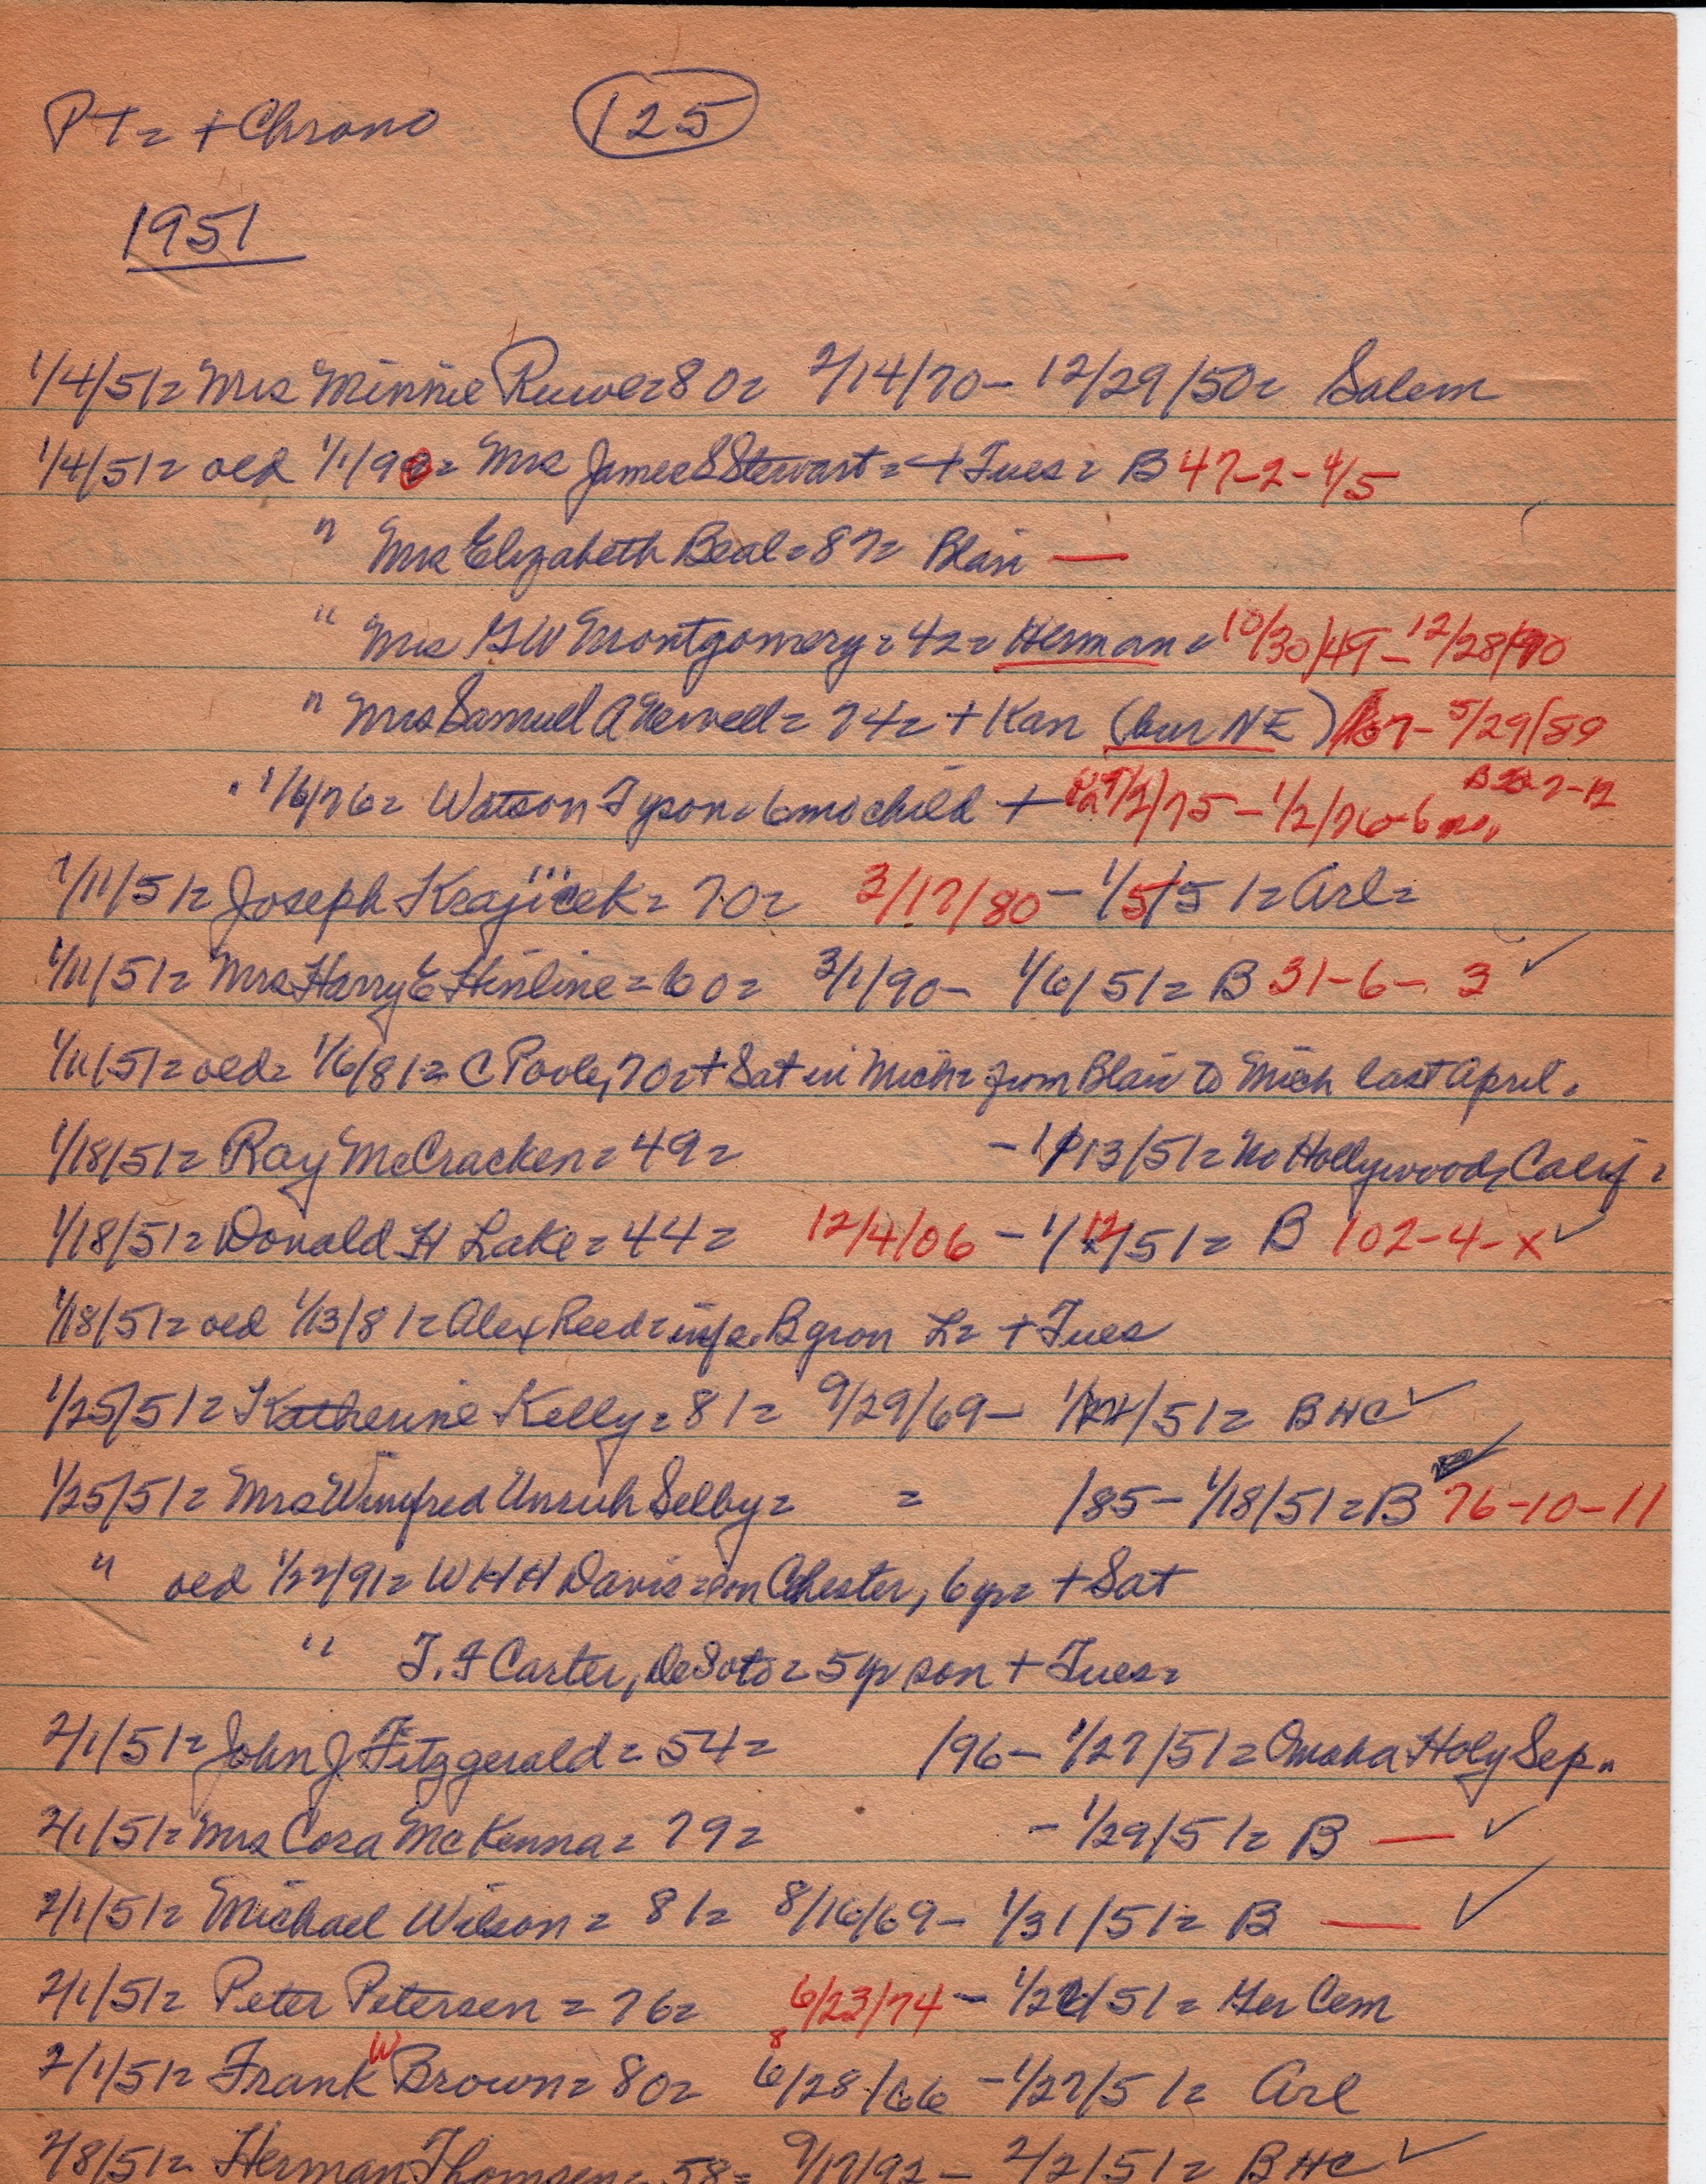 PT = + Chrono 125
1951
1/4/51= Mrs Minnie Ruwe=80= 2/14/70- 12/29/50= Salem
1/4/51= old 1/1/90= Mrs James S Stewart= + Tues= B 47-2-4/5
" Mrs Elizabeth Beal=87= Blair —
" Mrs G W Montgomery=42= Herman= 10/30/49-12/28/90
" Mrs Samuel A Newell= 74= + Kan (bur NE) 67- 5/29/59
" 1/6/76= Watson Tyson= 6mo child + 7/2/75 - 1/2/76-6 mo,, B 7-12
1/11/51= Joseph Krajicek= 70= 3/17/80 - 1/5/51= Arl=
1/11/51= Mrs Harry E Hinline=60= 3/1/90- 1/6/51= B 31-6- 3 ✓
1/11/51= old= 1/6/81= C Poole, 70= + Sat in Mich= from Blair to Mich last April.
1/18/51= Ray McCracken= 49= -1/13/51= No Hollywood, Calif=
1/18/51= Donald H Lake= 44= 12/4/06 - 1/12/51= B 102-4-x ✓
1/18/51= old 1/13/81= Alex Reed= inf s. Bryon L= + Tues
1/25/51= Katherine Kelly= 81= 9/29/69- 1/ /51= BHC ✓
1/25/51= Mrs Winifred Unruh Selby= = /85- 1/18/51= B 76-10-11
" old 1/22/91= W H H Davis= son Chester, 6yr= + Sat
" T. F Carter, DeSoto= 5 yr son + Tues=
2/1/51= John J. Fitzgerald= 54= /96- 1/27/51= Omaha Holy Sep.
2/1/51= Mrs Cora McKenna= 79= - 1/29/51= B — ✓
2/1/51= Michael Wilson= 81= 8/16/69- 1/31/51= B — ✓
2/1/51= Peter Petersen= 76= 6/23/74 - 1/ /51= Ger Cem
2/1/51= Frank W Brown= 80= 8 6/28/66 - 1/27/51= Arl
2/8/51= Herman Thomsen= 58= 9/17/92- 2/2/51= BHC ✓